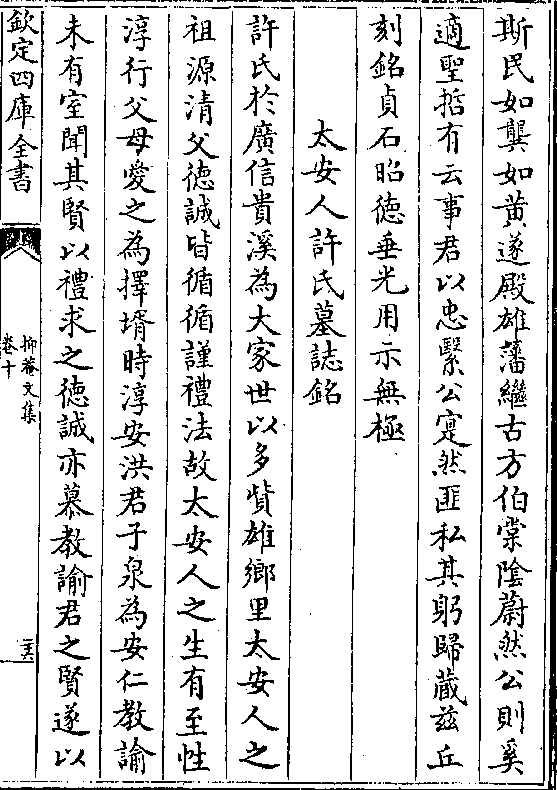 斯民如龔如黄遂殿雄藩繼古方伯棠陰蔚然公則奚
適聖哲有云事君以忠繄公寔然匪私其躬歸蔵兹丘
刻銘貞石昭德垂光用示無極
太安人許氏墓誌銘
許氏於廣信貴溪為大家世以多貲雄鄉里太安人之
祖源清父德誠皆循循謹禮法故太安人之生有至性
淳行父母愛之為擇壻時淳安洪君子泉為安仁教諭
未有室聞其賢以禮求之德誠亦慕教諭君之賢遂以
欽定四庫全書
抑菴文集
卷十
二六